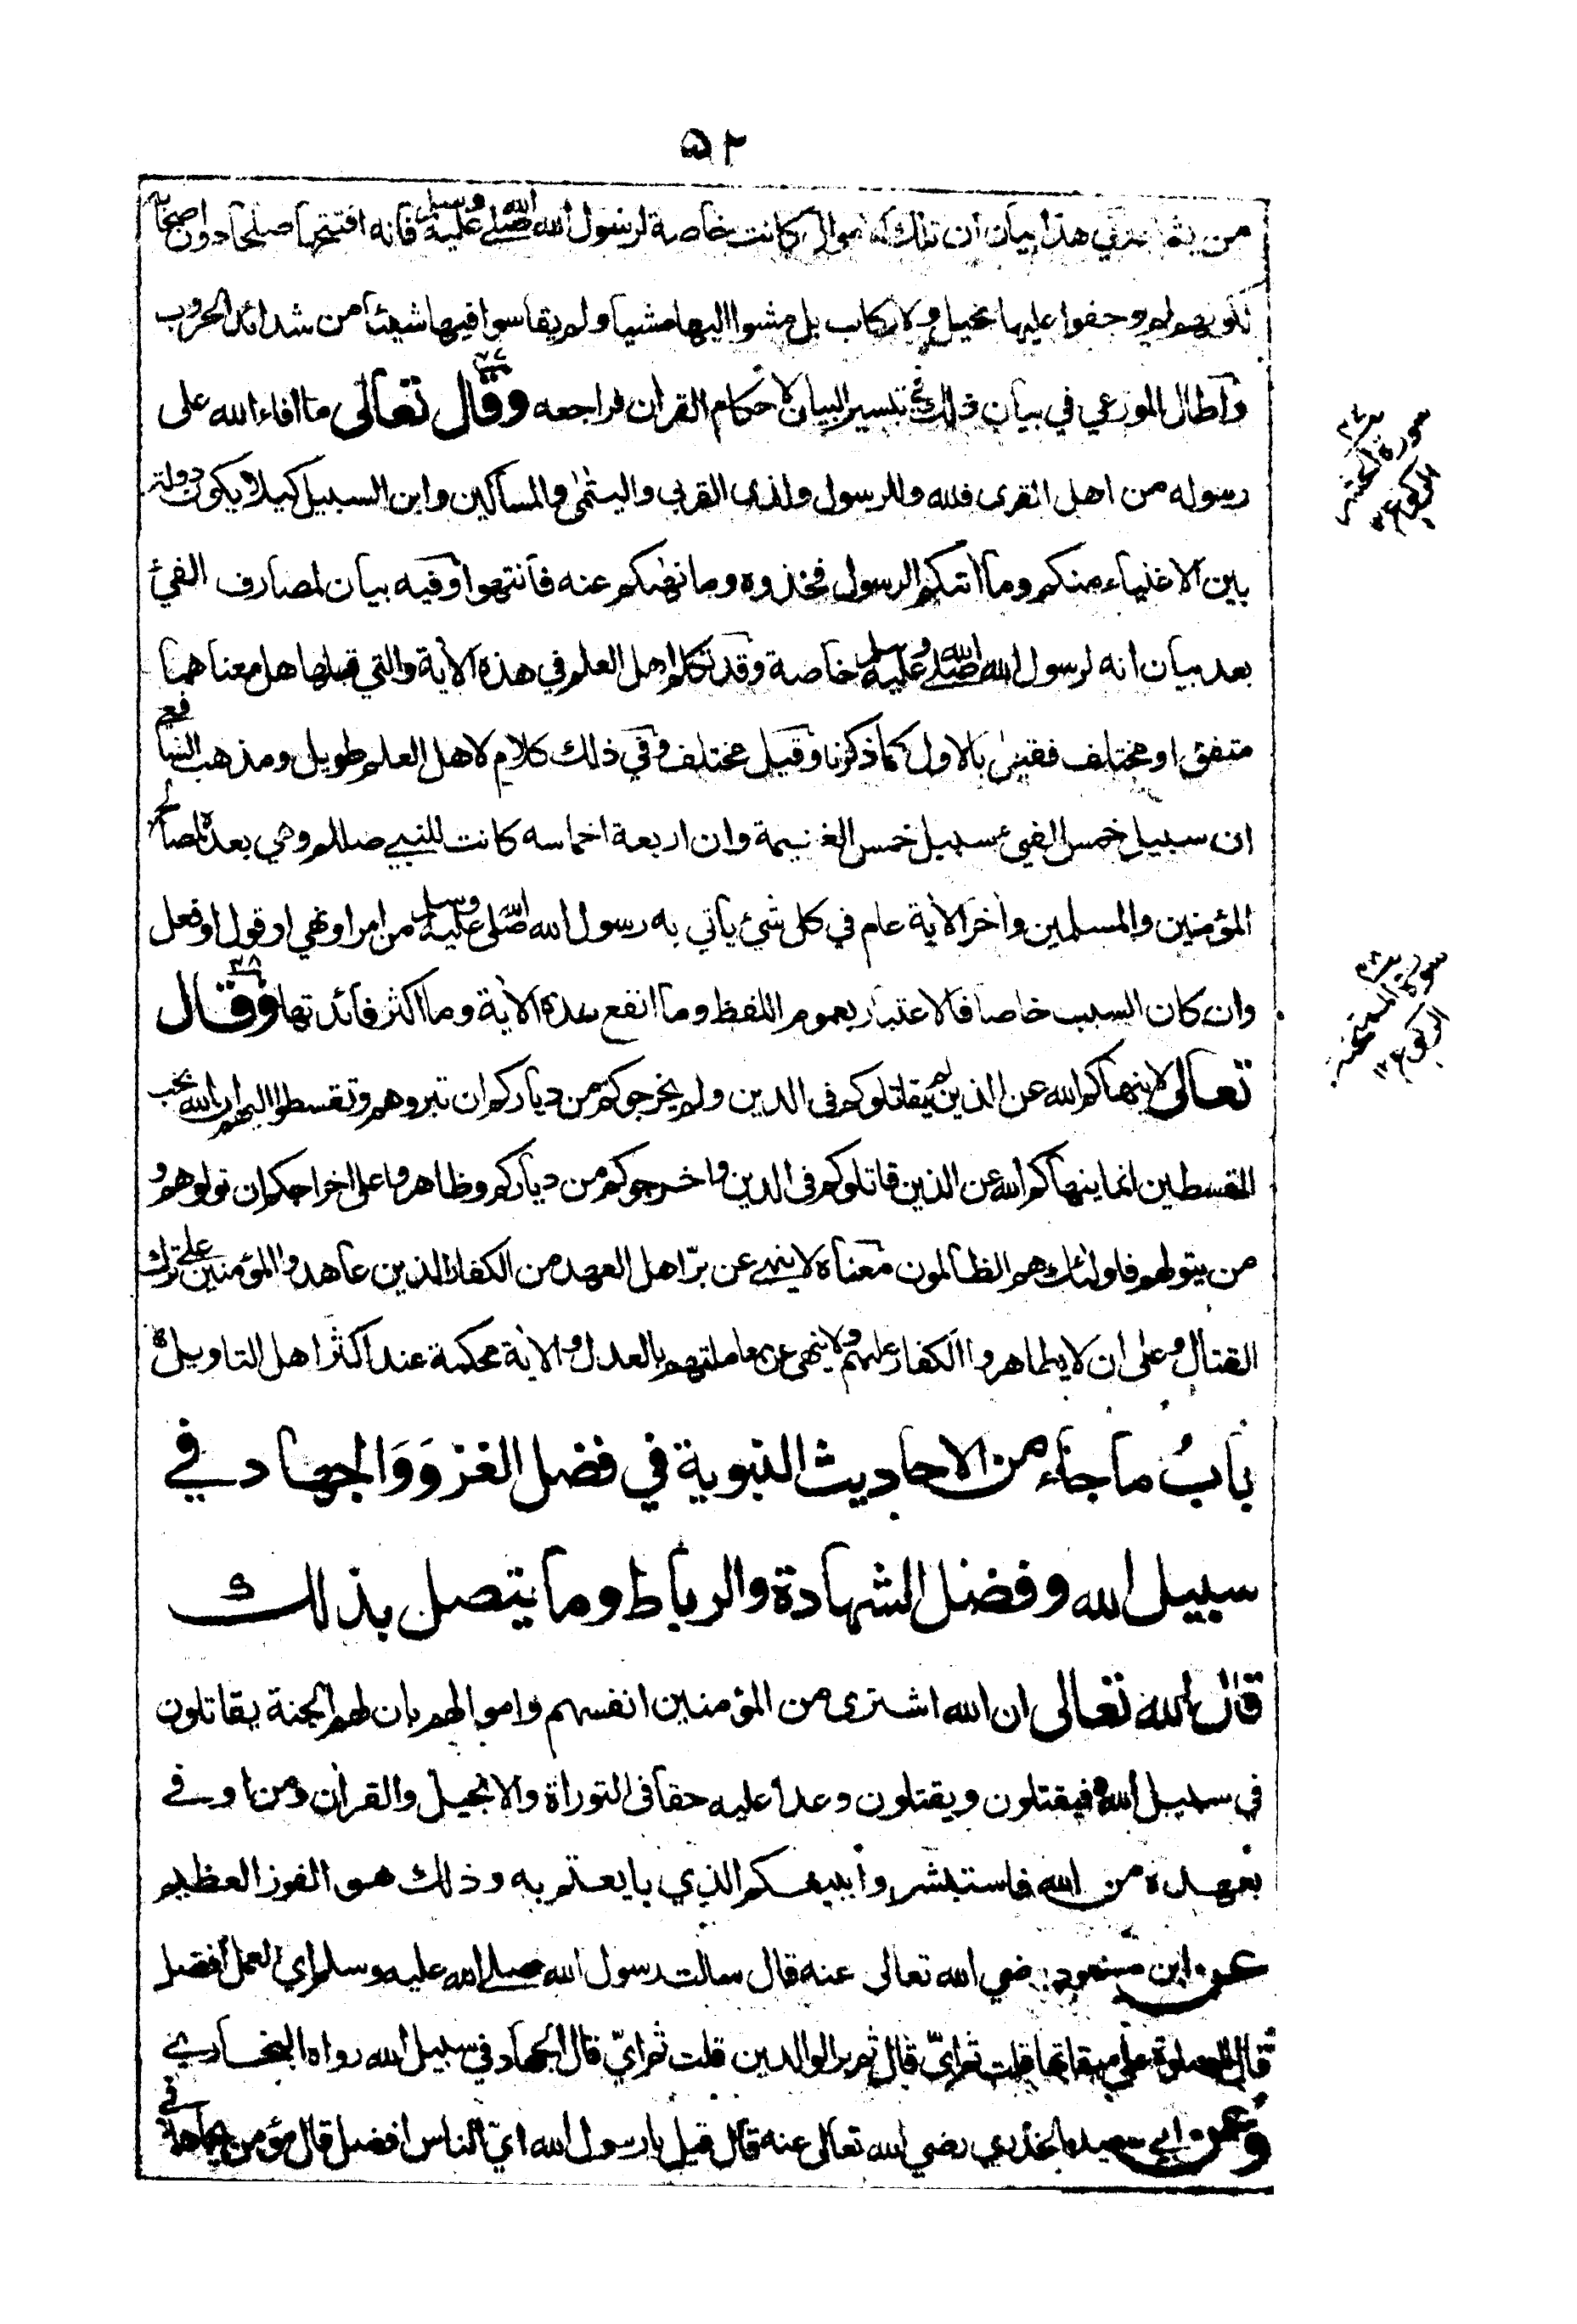 ٥٢
من يشاء وفي هذا بيان ان تلك الاموال كانت خاصة لرسول الله صلى الله عليه وسلم فانه افتتحها صلحا دون اصحابه
لكونهم لم يوجفوا عليها بخيل ولا ركاب بل مشوا اليها مشيا ولم يقاسوا فيها شيئا من شدائد الحروب
واطال الموزعي في بيان ذلك في تيسير البيان لاحكام القران فراجعه وقال تعالى ما افاء الله على
رسوله من اهل القرى فلله وللرسول ولذى القربى واليتمى والمساكين وابن السبيل كيلا يكون دولة
بين الاغنياء منكم وما اتكم الرسول فخذوه وما نهكم عنه فانتهوا وفيه بيان لمصارف الفيئ
بعد بيان انه لرسول الله صلى الله عليه وسلم خاصة وقد تكلم اهل العلم في هذه الاية والتي قبلها هل معناهما
متفق او مختلف فقيل بالاول كما ذكرنا وقيل مختلف وفي ذلك كلام لاهل العلم طويل ومذهب الشافعي
ان سبيل خمس الفيء سبيل خمس الغنيمة وان اربعة اخماسه كانت للنبي صللم وهي بعده لمصالح
المؤمنين والمسلمين واخر الاية عام في كل شئ يأتي به رسول الله صلى الله عليه وسلم من امر او نهي او قول او فعل
وان كان السبب خاصا فالاعتبار بعموم اللفظ وما انفع هذه الاية وما اكثر فائدتها وقال
تعالى لا ينهاكم الله عن الذين لم يقاتلوكم في الدين ولم يخرجوكم من دياركم ان تبروهم وتقسطوا اليهم ان الله يحب
المقسطين انما ينهاكم الله عن الذين قاتلوكم في الدين واخرجوكم من دياركم وظاهروا على اخراجكم ان تولوهم و
من يتولهم فاولئك هم الظالمون معناه لا ينهى عن برّ اهل العهد من الكفار الذين عاهدوا المؤمنين على ترك
القتال وعلى ان لا يظاهروا الكفار عليهم ولا ينهى عن معاملتهم بالعدل والاية محكمة عند اكثر اهل التاويل
باب ما جاء من الاحاديث النبوية في فضل الغزو والجهاد في
سبيل الله وفضل الشهادة والرباط وما يتصل بذلك
قال الله تعالى ان الله اشترى من المؤمنين انفسهم واموالهم بان لهم الجنة يقاتلون
في سبيل الله فيقتلون ويقتلون وعدا عليه حقا في التوراة والانجيل والقران ومن اوفى
بعهده من الله فاستبشروا ببيعكم الذي بايعتم به وذلك هو الفوز العظيم
عن ابن مسعود رضي الله تعالى عنه قال سالت رسول الله صلى الله عليه وسلم اي العمل افضل
قال الصلوة على ميقاتها قلت ثم ايّ قال ثم بر الوالدين قلت ثم ايّ قال الجهاد في سبيل الله رواه البخاري
وعن ابي سعيد الخدري رضي الله تعالى عنه قال قيل يا رسول الله ايّ الناس افضل قال مؤمن يجاهد في
سورة الحشر
الركوع
سورة الممتحنة
الركوع